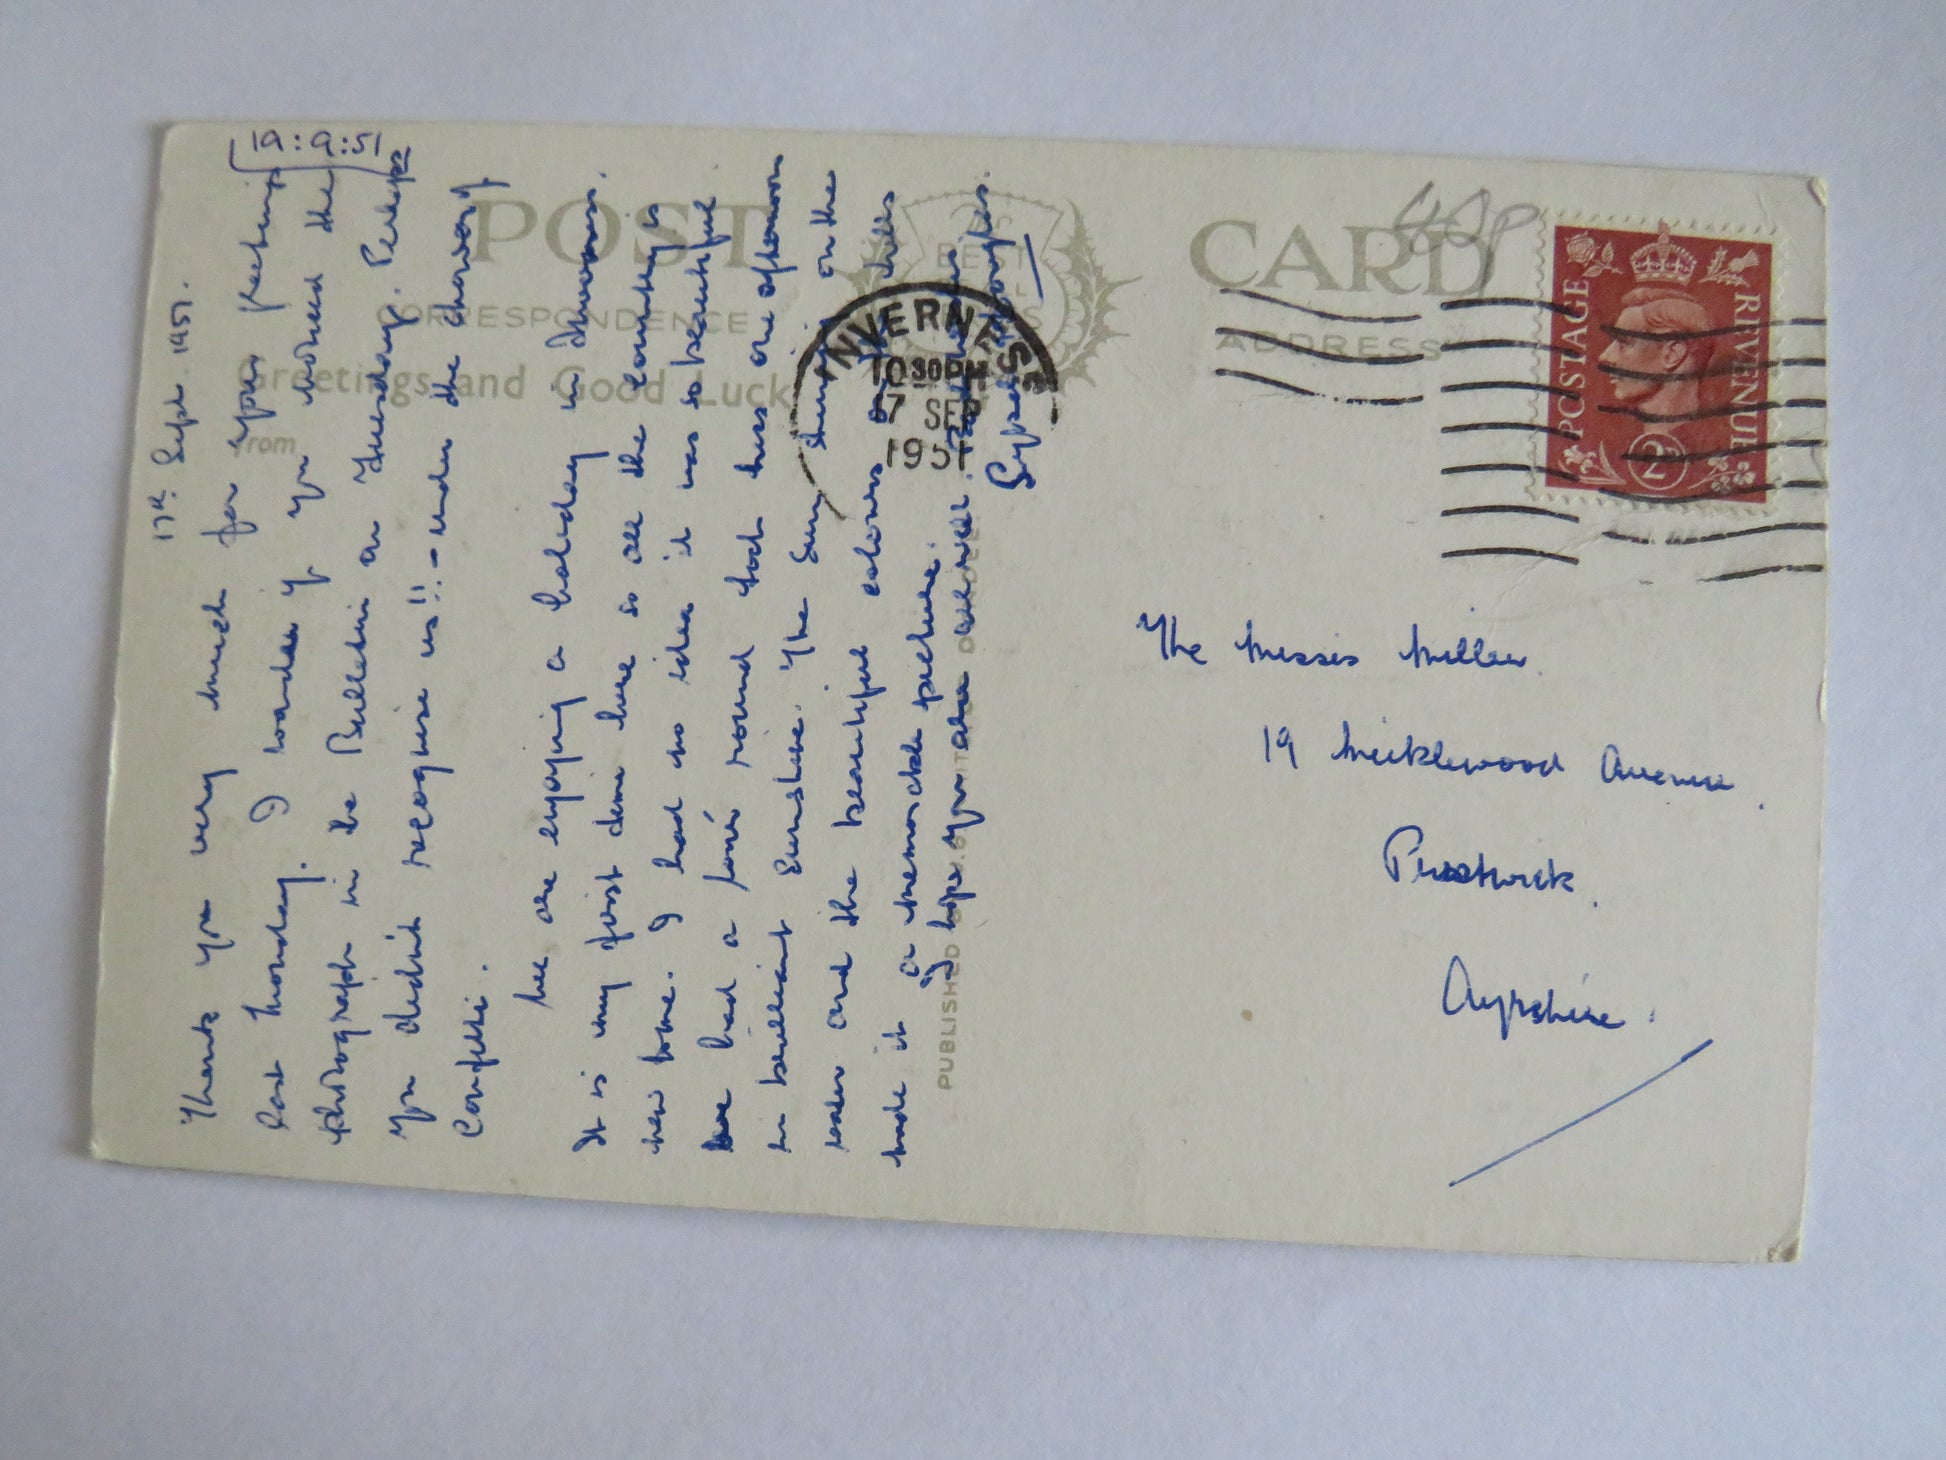 POST CARD
CORRESPONDENCE
ADDRESS
Greetings and Good Luck
from
19:9:51
17th Sept. 1951.
Thank you very much for your greetings
last Monday. I wonder if you noticed the
photograph in the Bulletin on Tuesday. Perhaps
you didn't recognise us!! - under the shower of
Confetti.
We are enjoying a holiday in Inverness.
It is my first time here so all the country is
new to me. I had no idea it was so beautiful
We had a tour round Loch Ness one afternoon
in brilliant sunshine. The sun shining on the
water and the beautiful colours of the hills
made it a memorable picture.
I hope you are all well.
INVERNESS
10 30 PM
17 SEP
1951
PUBLISHED
40p
POSTAGE REVENUE
2D
The Misses Miller
19 Micklewood Avenue
Prestwick
Ayrshire.